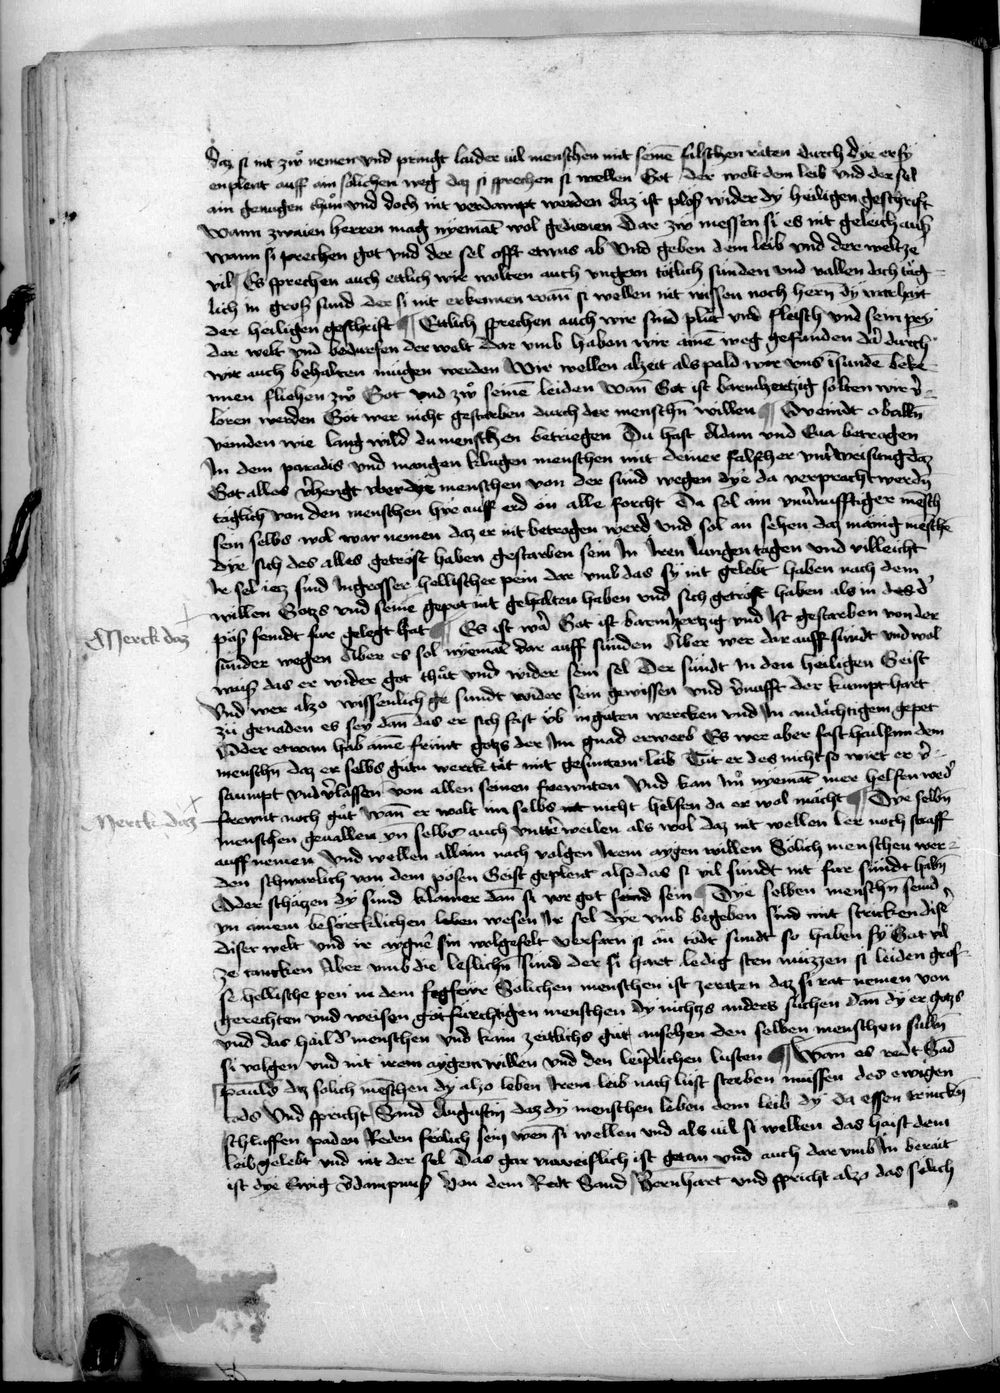 daz si nit zwͦ nemen vnd pringt laider vil menschen mit seinē falschen räten durch dye er sy
enplent auff ain solichen weg daz si sprechen si wellen Got der welt dem leib vnd der sel
ain genugen thun vnd doch nit verdampt werden daz ist ploß wider dy heiligen geschrift
Wann zwaien herren mag nyemāt wol gedienen Dar zw messen si es nit geleich auß
wann si sprechen got vnd der sel offt etwas ab vnd geben dem leib vnd der welt ze
vil Es sprechen auch ettlich wir wolten auch vngern tötlich sunden vnd vallen doch täg-
lich in groß sund der si nit erkennen wañ si wellen nit wissen noch hern dy warhait
der heiligen geschrift ¶ Ettlich sprechen auch wir sind plůt vnd fleisch vnd sein pey
der welt vnd bedurfen der welt Dar vmb haben wir ainē weg gefunden da durch
wir auch behalten mügen werden Wir wellen alzeit als pald wir vns ī sundē beke-
nnen fliehen zwͦ Got vnd zwͦ seinē leiden Wañ Got ist barmhertzig solten wir v̄-
loren werden Got wer nicht gestorben durch der menschñ willen ¶ O veindt ob alln̄
veinden wie lang wild du menschen betriegen Du hast Adam vnd Eua betrogen
In dem paradis vnd mangen klugen menschen mit deiner falscher vnt̄weisung daz
Got alles v̄hengt wer dye menschen von der sund wegen dye da verpracht werdn̄
täglich von den menschen hye auff erd on alle forcht Da sol ain vnu̇nufftiger mēsch
sein selbs wol war nemen daz er nit betrogen werd vnd sol an sehen daz mänig mēsche
dye sich des alles getröst haben gestarben sein In Iren Iungen tagen vnd villeicht
Ir sel iez sind In grosser hellischer pein dar vmb das sy nit gelebt haben nach dem
willen Gotzs vnd seine gepot nit gehalten haben vnd sich getröst haben als in des d̄
Merck daz pöß feindt fur gelegt hat ¶ Es ist war Got ist barmhertzig vnd Ist gestorben von der
sünder wegen Aber es sol nyemāt dar auff sünden Aber wer dar auff sündt vnd wol
waiß das er wider got thůt vnd wider sein sel Der sündt In den heiligen Geist
Vnd wer alzo wissenlich ge sundt wider sein gewissen vnd v̄nufft der kumpt hart
zu genaden es sey dan das er sich fast üb in guten wercken vnd In andächtigem gepet
Oder etwan hab ainē freünt gotzs der Im gnad erwerb Es wer aber fast hailsam dem
menschn̄ daz er selbs gutu werck tät mit gesuntem leib Tůt er des nicht so wirt er v̄-
saumpt vnd v̄lassen von allen seinen frewnten Vnd kan Im nyemāt mer helfen wed̄
Merck daz frewnt noch gůt Wañ er wolt im selbs nicht helfen da er wol mächt ¶ Dye selbn̄
menschen geuallen yn selbs auch vntterweilen als wol daz nit wellen ler noch straff
auff nemen Vnd wellen allain nach volgen Irem aygen willen Solich menschen wer-
den schwarlich von dem pösen Geist geplent also das si vil sündt nit fur sündt habn̄
Oder schatzen dy sünd klainer dan si vor got sein ¶ Dye selben menschn̄ seind
yn ainem beschrecklichen leben wesen Ir sel dye vmb begeben sind mit stricken dise
diser welt vnd ir aygnē sin wolgefelt verfarn si an todt sündt so haben sy Got vil
ze dancken Aber vmb die leslichn̄ sünd der si hart ledig sten müzzen si leiden gros-
se hellische pen in dem fegfewr Solichen menschen ist zeraten daz si rat nemen von
gerechten vnd weisen gotfürchtigen menschen dy nichtzs anders suchen dan dy er gotzs
vnd das hail d̄ menschen vnd kain zeitlichs gůt ansehen den selben menschen sulln̄
si volgen vnd nit irem aygem willen vnd den leiplichen lusten ¶ Wañ es redt Sād
paulus daz solich menschen dy alzo leben Irem leib nach lüst sterben müssen des ewigen
tods Vnd spricht Sand Augustin daz dy menschen leben dem leib dy da essen trinckn̄
schlaffen paden Reden frölich sein wen si wellen vnd als vil si wellen das haist dem
leib gelebt vnd nit der sel Das gar vnweislich ist getan vnd auch dar vmb In berait
ist dye Ewig v̄dampnuß Von dem Redt Sand Bernhart vnd spricht alzo das solich